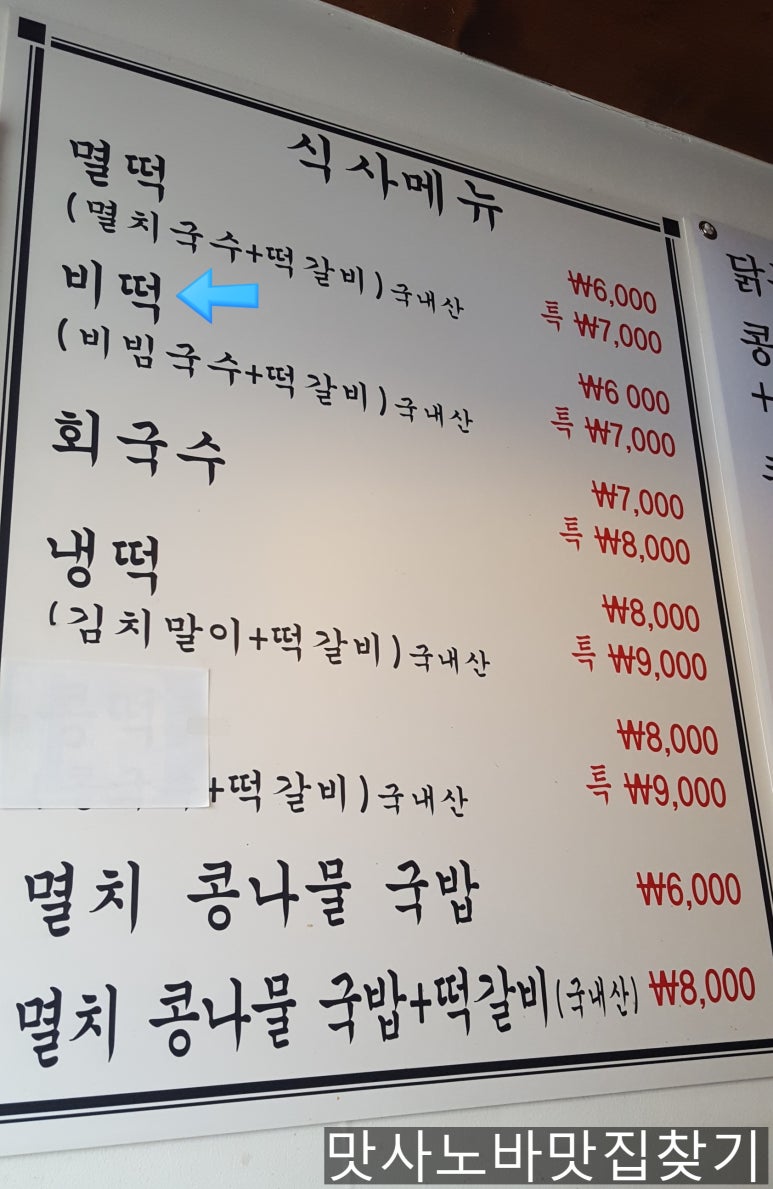 식사메뉴
멸떡
(멸치국수+떡갈비)국내산
₩6,000
특 ₩7,000
비떡
(비빔국수+떡갈비)국내산
₩6 000
특 ₩7,000
회국수
₩7,000
특 ₩8,000
냉떡
(김치말이+떡갈비)국내산
₩8,000
특 ₩9,000
+떡갈비)국내산
₩8,000
특 ₩9,000
멸치 콩나물 국밥 ₩6,000
멸치 콩나물 국밥+떡갈비(국내산) ₩8,000
닭
콩
+
맛사노바맛집찾기